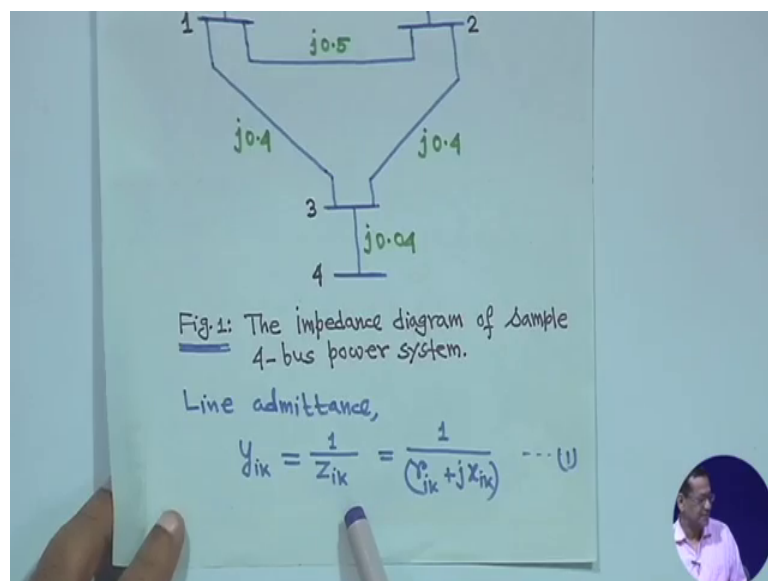 1
2
j0.5
j0.4
j0.4
3
j0.04
4
Fig.1: The impedance diagram of sample
4-bus power system.
Line admittance,
y_ik = 1/Z_ik = 1/(r_ik + jx_ik) ---(1)